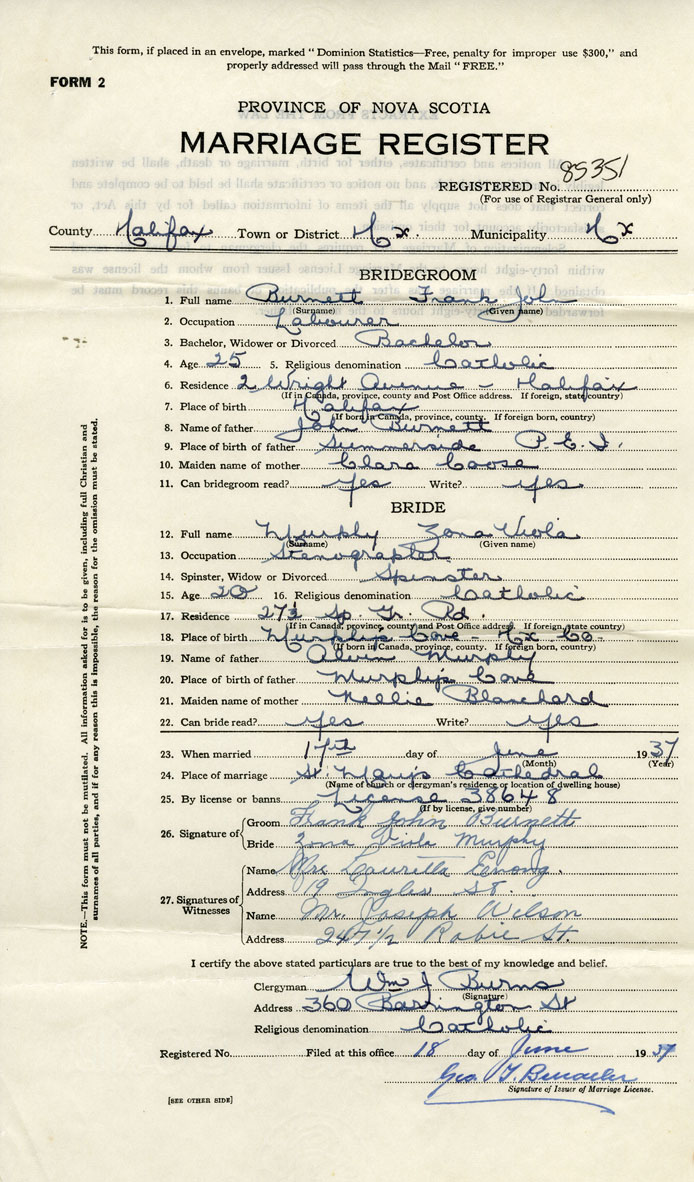 This form, if placed in an envelope, marked "Dominion Statistics—Free, penalty for improper use $300," and
properly addressed will pass through the Mail "FREE."
FORM 2
PROVINCE OF NOVA SCOTIA
MARRIAGE REGISTER
REGISTERED No. 85351
(For use of Registrar General only)
County Halifax Town or District Hx. Municipality Hx
BRIDEGROOM
1. Full name Burnett Frank John
(Surname) (Given name)
2. Occupation Labourer
3. Bachelor, Widower or Divorced Bachelor
4. Age 25 5. Religious denomination Catholic
6. Residence 2 Wright Avenue - Halifax
(If in Canada, province, county and Post Office address. If foreign, state country)
7. Place of birth Halifax
(If born in Canada, province, county. If foreign born, country)
8. Name of father John Burnett
9. Place of birth of father Summerside P.E.I.
10. Maiden name of mother Clara Coose
11. Can bridegroom read? yes Write? yes
BRIDE
12. Full name Murphy Zona Viola
(Surname) (Given name)
13. Occupation Stenographer
14. Spinster, Widow or Divorced Spinster
15. Age 20 16. Religious denomination Catholic
17. Residence Sp. Gr. Rd.
(If in Canada, province, county and Post Office address. If foreign, state country)
18. Place of birth Murphy's Cove - Hx Co-
(If born in Canada, province, county. If foreign born, country)
19. Name of father Alvin Murphy
20. Place of birth of father Murphy's Cove
21. Maiden name of mother Nellie Blanchard
22. Can bride read? yes Write? yes
23. When married 17th day of June 1937
(Month) (Year)
24. Place of marriage St. Mary's Cathedral
(Name of church or clergyman's residence or location of dwelling house)
25. By license or banns License 38648
(If by license, give number)
26. Signature of
Groom Frank John Burnett
Bride Zona Viola Murphy
27. Signatures of Witnesses
Name Mrs Lauretta
Address 19 Inglis St.
Name Mr. Joseph Wilson
Address 247 1/2 Robie St.
I certify the above stated particulars are true to the best of my knowledge and belief.
Clergyman Wm J Burns
(Signature)
Address 360 Barrington St
Religious denomination Catholic
Registered No. Filed at this office 18 day of June 1937
Geo.
Signature of Issuer of Marriage License.
[SEE OTHER SIDE]
NOTE.—This form must not be mutilated. All information asked for is to be given, including full Christian and
surnames of all parties, and if for any reason this is impossible, the reason for the omission must be stated.